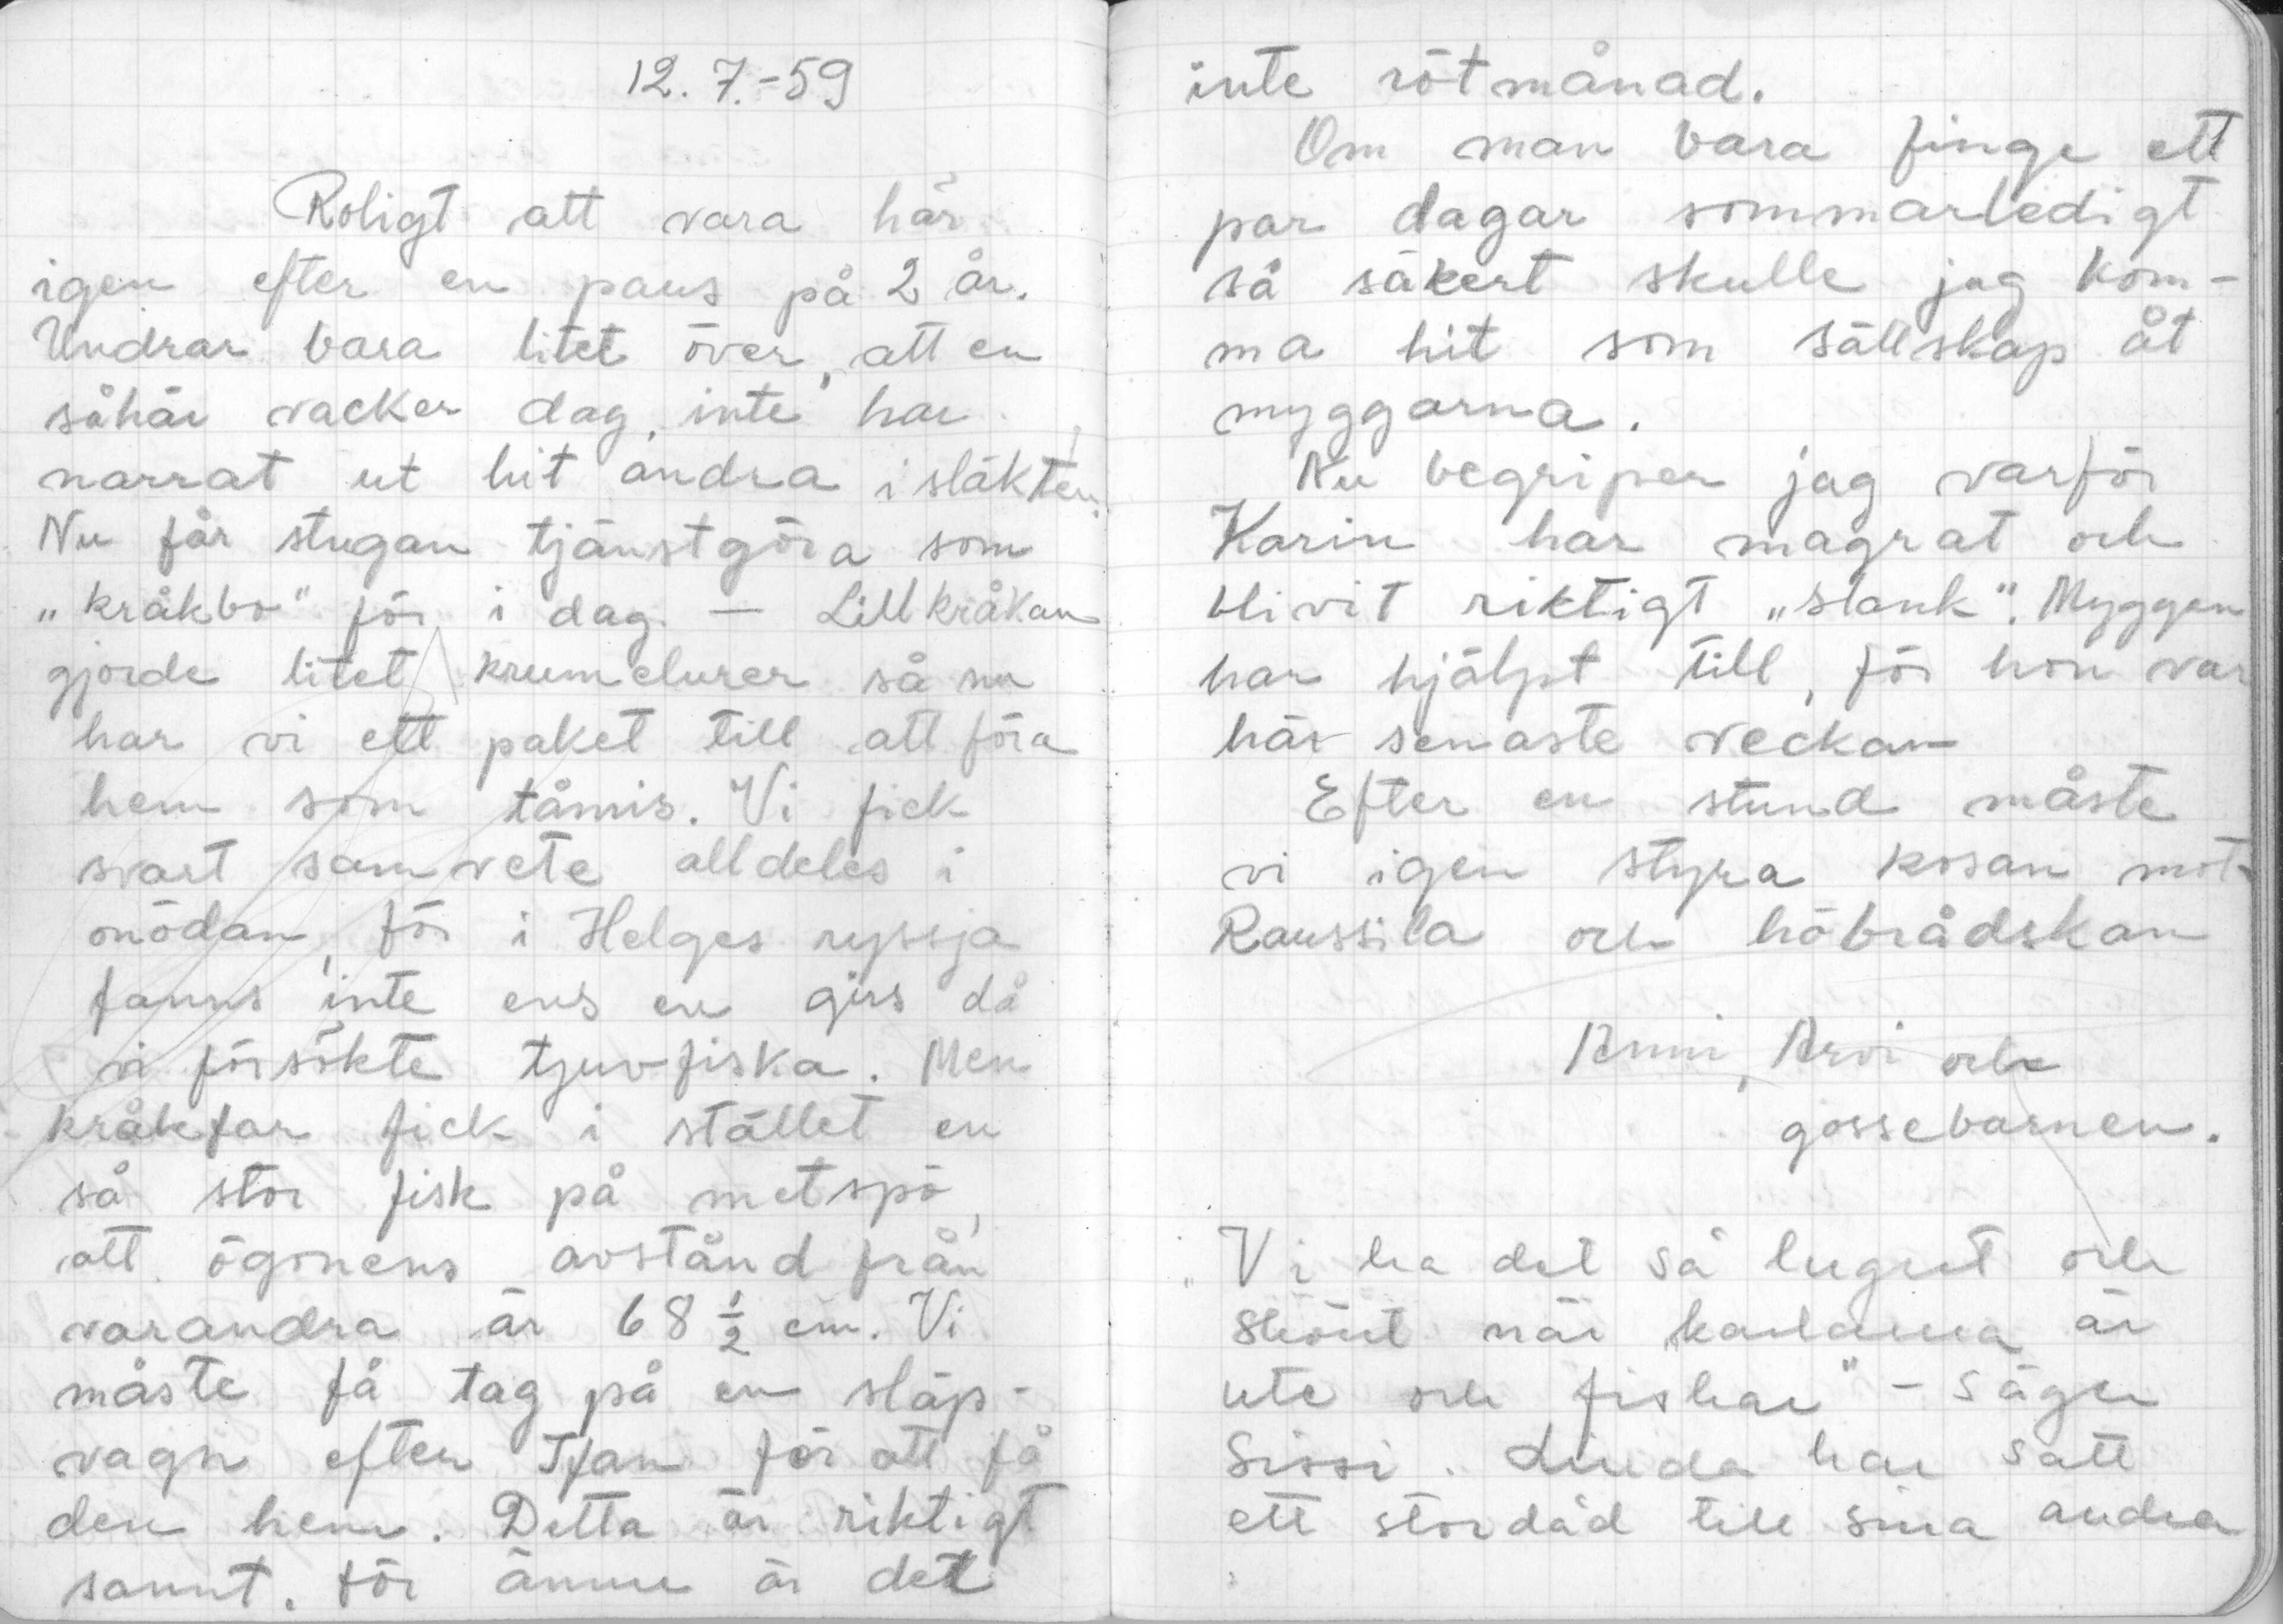 12.7.-59
Roligt att vara här
igen efter en paus på 2 år.
Undrar bara litet över, att en
såhär vacker dag, inte har
narrat ut hit andra i släkten.
Nu får stugan tjänstgöra som
„kråkbo" för i dag. — Lillkråkan
gjorde litet krumelurer så nu
har vi ett paket till att föra
hem som tåmis. Vi fick
svart samvete alldeles i
onödan, för i Helges ryssja
fanns inte ens en girs då
vi försökte tjuvfiska. Men
kråkfar fick i stället en
så stor fisk på metspö,
att ögonens avstånd från
varandra är 68 ½ cm. Vi
måste få tag på en släp-
vagn efter Tfan för att få
den hem. Detta är riktigt
sannt, för ännu är det
inte rötmånad.
Om man bara finge ett
par dagar sommarledigt
så säkert skulle jag kom-
ma hit som sällskap åt
myggarna.
Nu begriper jag varför
Karin har magrat och
blivit riktigt „slank". Myggen
har hjälpt till, för hon var
här senaste veckan
Efter en stund måste
vi igen styra kosan mot
Raussila och höbrådskan
Anni, Arvi och
gossebarnen.
„Vi ha det så lugnt och
skönt när karlarna är
ute och fiskar" - säger
Sissi. Linda har satt
ett stordåd till sina andra